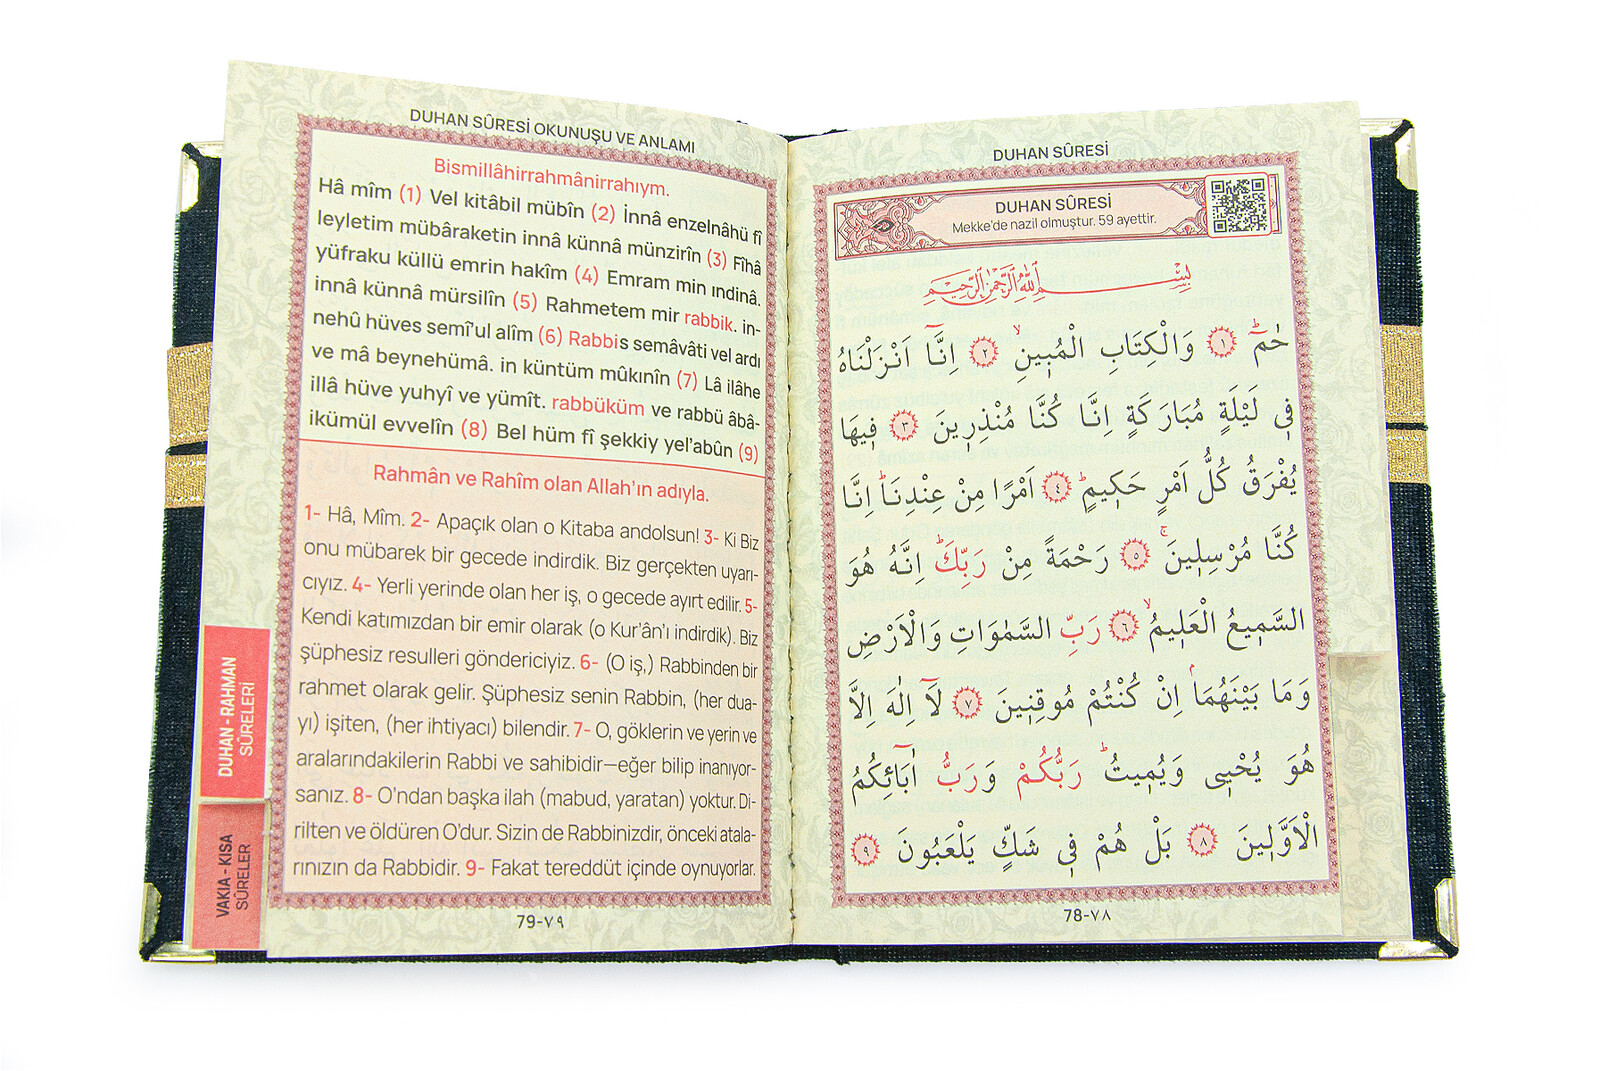 DUHAN SÛRESİ
DUHAN SÛRESİ
Mekke'de nazil olmuştur. 59 ayettir.
بِسْمِ اللّٰهِ الرَّحْمٰنِ الرَّحِيمِ
حٰمٓ ﴿١﴾ وَالْكِتَابِ الْمُبٖينِۙ ﴿٢﴾ اِنَّٓا اَنْزَلْنَاهُ
فٖي لَيْلَةٍ مُبَارَكَةٍ اِنَّا كُنَّا مُنْذِرٖينَ ﴿٣﴾ فٖيهَا
يُفْرَقُ كُلُّ اَمْرٍ حَكٖيمٍۜ ﴿٤﴾ اَمْرًا مِنْ عِنْدِنَاۜ اِنَّا
كُنَّا مُرْسِلٖينَۚ ﴿٥﴾ رَحْمَةً مِنْ رَبِّكَۜ اِنَّهُ هُوَ
السَّمٖيعُ الْعَلٖيمُۙ ﴿٦﴾ رَبِّ السَّمٰوَاتِ وَالْاَرْضِ
وَمَا بَيْنَهُمَاۢ اِنْ كُنْتُمْ مُوقِنٖينَ ﴿٧﴾ لَٓا اِلٰهَ اِلَّا
هُوَ يُحْيٖى وَيُمٖيتُۜ رَبُّكُمْ وَرَبُّ اٰبَٓائِكُمُ
الْاَوَّلٖينَ ﴿٨﴾ بَلْ هُمْ فٖي شَكٍّ يَلْعَبُونَ ﴿٩﴾
78-٧٨
DUHAN SÛRESİ OKUNUŞU VE ANLAMI
Bismillâhirrahmânirrahıym.
Hâ mîm (1) Vel kitâbil mübîn (2) İnnâ enzelnâhü fî
leyletim mübâraketin innâ künnâ münzirîn (3) Fîhâ
yüfraku küllü emrin hakîm (4) Emram min ındinâ.
innâ künnâ mürsilîn (5) Rahmetem mir rabbik. in-
nehû hüves semî'ul alîm (6) Rabbis semâvâti vel ardı
ve mâ beynehümâ. in küntüm mûkınîn (7) Lâ ilâhe
illâ hüve yuhyî ve yümît. rabbüküm ve rabbü âbâ-
ikümül evvelîn (8) Bel hüm fî şekkiy yel'abûn (9)
Rahmân ve Rahîm olan Allah'ın adıyla.
1- Hâ, Mîm. 2- Apaçık olan o Kitaba andolsun! 3- Ki Biz
onu mübarek bir gecede indirdik. Biz gerçekten uyarı-
cıyız. 4- Yerli yerinde olan her iş, o gecede ayırt edilir. 5-
Kendi katımızdan bir emir olarak (o Kur'ân'ı indirdik). Biz
şüphesiz resulleri göndericiyiz. 6- (O iş,) Rabbinden bir
rahmet olarak gelir. Şüphesiz senin Rabbin, (her dua-
yı) işiten, (her ihtiyacı) bilendir. 7- O, göklerin ve yerin ve
aralarındakilerin Rabbi ve sahibidir—eğer bilip inanıyor-
sanız. 8- O'ndan başka ilah (mabud, yaratan) yoktur. Di-
rilten ve öldüren O'dur. Sizin de Rabbinizdir, önceki atala-
rınızın da Rabbidir. 9- Fakat tereddüt içinde oynuyorlar.
79-٧٩
DUHAN - RAHMAN
SÛRELERİ
VAKIA - KISA
SÛRELER